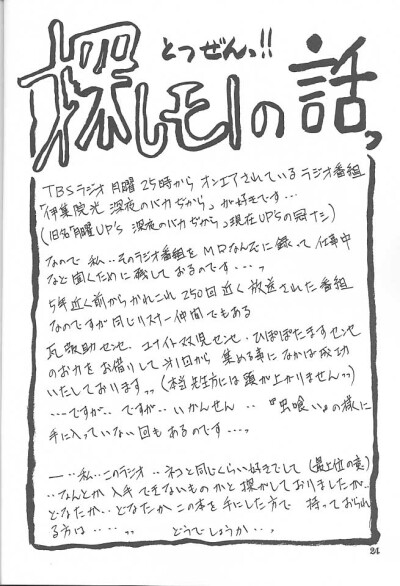 とつぜんっ!!
探しモノの話っ
TBSラジオ月曜25時からオンエアされているラジオ番組
「伊集院光 深夜のバカぢから」が好きです…
(旧名月曜UP'S 深夜のバカぢから」現在UP'Sの冠ナシ)
なので私‥そのラジオ番組をMDなんぞに録って仕事中
など聞くために残しておるのです…,
5年近く前からかれこれ250回近く放送された番組
なのですが同じリスナー仲間でもある
瓦敬助センセ、ユナイト双児センセ・ひぽぽたますセンセ
のお力をお借りして#1回から集める事になかば成功
いたしております,,(本当先生方には頭が上がりません,,)
…ですが‥ですが‥いかんせん‥『虫喰い』の様に
手に入っていない回もあるのです…,
―‥私‥このラジオ‥ネコと同じくらい好きでして(最上位の意)
‥なんとか入手できないものかと探がしておりましたが‥
どなたか‥どなたかこの本を手にした方で 持っておられ
る方は‥‥,, どうでしょうか…,
21